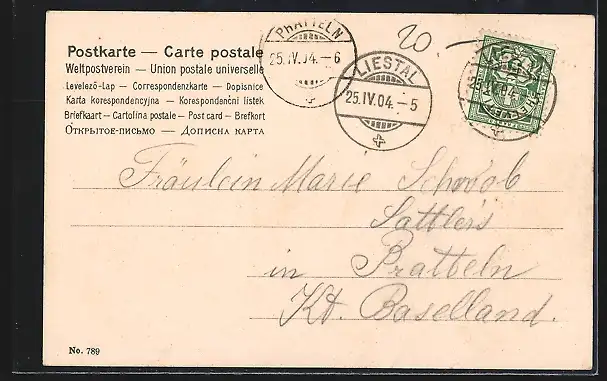 Postkarte — Carte postale
Weltpostverein — Union postale universelle
Levelező-Lap — Correspondenzkarte — Dopisnice
Karta korespondencyjna — Korespondenční listek
Briefkaart — Cartolina postale — Post card — Brefkort
Открытое-письмо — Дописна карта
PRATTELN
25.IV.04.–6
LIESTAL
25.IV.04.–5
20.
Fräulein Marie Schwob
Sattlers
in Pratteln
Kt. Baselland.
No. 789